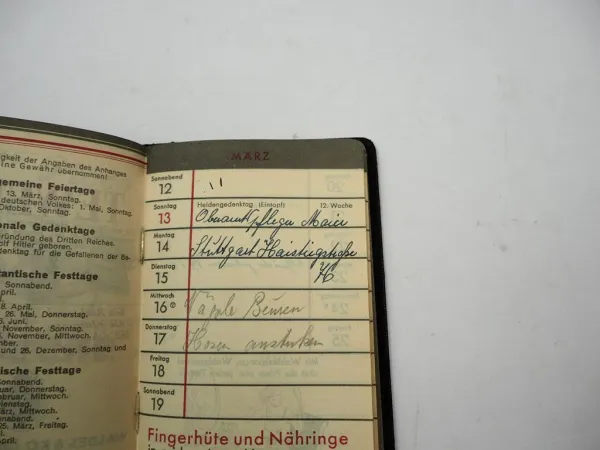 igkeit der Angaben des Anhanges
eine Gewähr übernommen!
gemeine Feiertage
13. März, Sonntag.
deutschen Volkes: 1. Mai, Sonntag.
Oktober, Sonntag.
onale Gedenktage
ründung des Dritten Reiches.
olf Hitler geboren.
denktag für die Gefallenen der Be-
antische Festtage
Sonnabend.
8. April.
26. Mai, Donnerstag.
Juni.
November, Sonntag.
November, Mittwoch.
ember.
und 26. Dezember, Sonntag und
ische Festtage
Sonnabend.
uar, Donnerstag.
ebruar, Mittwoch.
enstag.
März, Mittwoch.
nabend.
März, Freitag.
April.
MÄRZ
Sonnabend
12
Sonntag Heldengedenktag (Eintopf) 12. Woche
13 Oberamtspfleger Maier
Montag
14 Stuttgart Haistiegstraße
Dienstag
15
Mittwoch
16 Beuren
Donnerstag
17 Hosen
Freitag
18
Sonnabend
19
Fingerhüte und Nähringe